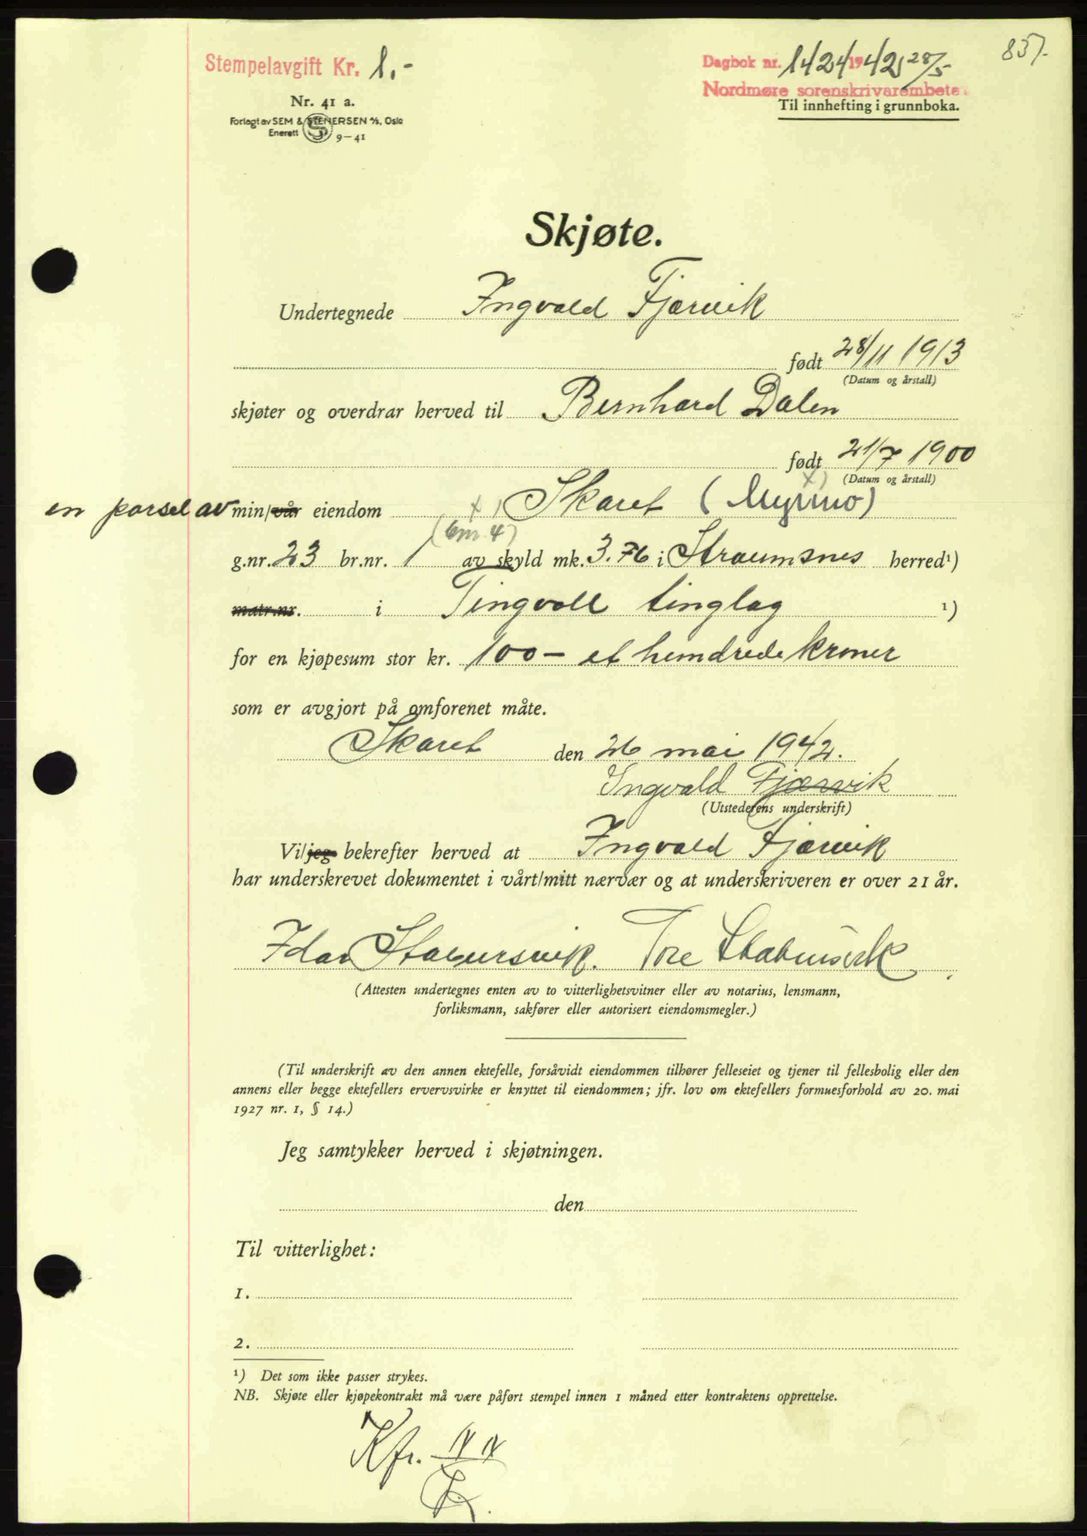 837.
Stempelavgift Kr. 1.-
Dagbok nr. 1424 1942 28/5
Nordmøre sorenskrivarembete.
Til innhefting i grunnboka.
Nr. 41 a.
Forlagt av SEM & STENERSEN A/S, Oslo
Enerett 9–41
Skjøte.
Undertegnede Ingvald Fjærvik
født 28/11 1913
(Datum og årstall)
skjøter og overdrar herved til Bernhard Dalen
født 21/7 1900
(Datum og årstall)
en parsel av min/vår eiendom x) Skaret (Myrmo) x)
(bm. 4)
g.nr. 23 br.nr. 1 av skyld mk. 3.76 i Straumsnes herred¹)
matr.nr. i Tingvoll tinglag ¹)
for en kjøpesum stor kr. 100 – et hundrede kroner
som er avgjort på omforenet måte.
Skaret den 26 mai 1942.
Ingvald Fjærvik
(Utstederens underskrift)
Vi/jeg bekrefter herved at Ingvald Fjærvik
har underskrevet dokumentet i vårt/mitt nærvær og at underskriveren er over 21 år.
Idar Stabursvik. Tore Stabursvik
(Attesten undertegnes enten av to vitterlighetsvitner eller av notarius, lensmann,
forliksmann, sakfører eller autorisert eiendomsmegler.)
(Til underskrift av den annen ektefelle, forsåvidt eiendommen tilhører felleseiet og tjener til fellesbolig eller den
annens eller begge ektefellers ervervsvirke er knyttet til eiendommen; jfr. lov om ektefellers formuesforhold av 20. mai
1927 nr. 1, § 14.)
Jeg samtykker herved i skjøtningen.
den
Til vitterlighet:
1.
2.
¹) Det som ikke passer strykes.
NB. Skjøte eller kjøpekontrakt må være påført stempel innen 1 måned etter kontraktens opprettelse.
Kfr.